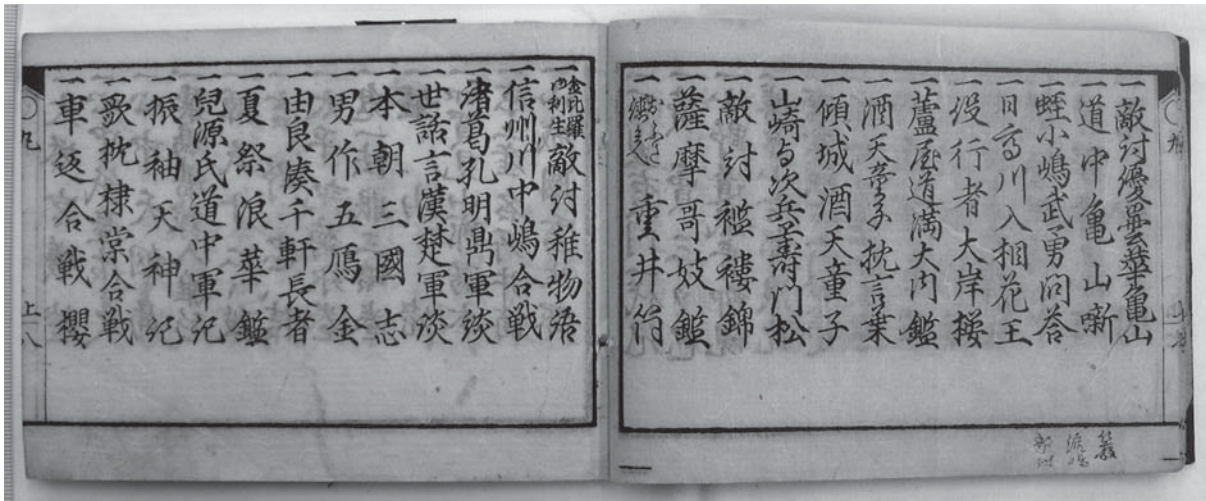 一敵討優曇華亀山
一道中亀山噺
一蛭小嶋武勇問荅
一日高川入相花王
一役行者大峰桜
一蘆屋道満大内鑑
一酒天童子枕言葉
一傾城酒天童子
一山崎与次兵衛寿門松
一敵討襤褸錦
一薩摩哥妓鑑
一重井筒
一金比羅御利生敵討稚物語
一信州川中嶋合戦
一諸葛孔明鼎軍談
一世話言漢楚軍談
一本朝三國志
一男作五鴈金
一由良湊千軒長者
一夏祭浪華鑑
一児源氏道中軍記
一振袖天神記
一歌枕棣棠合戦
一車返合戦櫻
上
八